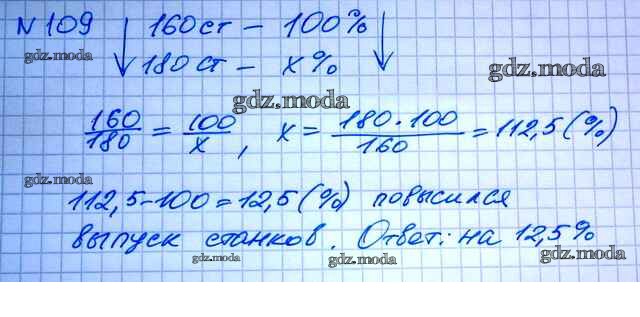 N 109 160 ст – 100%
gdz.moda
180 ст – x% gdz.moda
gdz.moda
160/180 = 100/x, x = 180·100/160 = 112,5 (%)
gdz.moda
112,5-100=12,5 (%) повысился
выпуск станков. Ответ: на 12,5%
gdz.moda gdz.moda gdz.moda